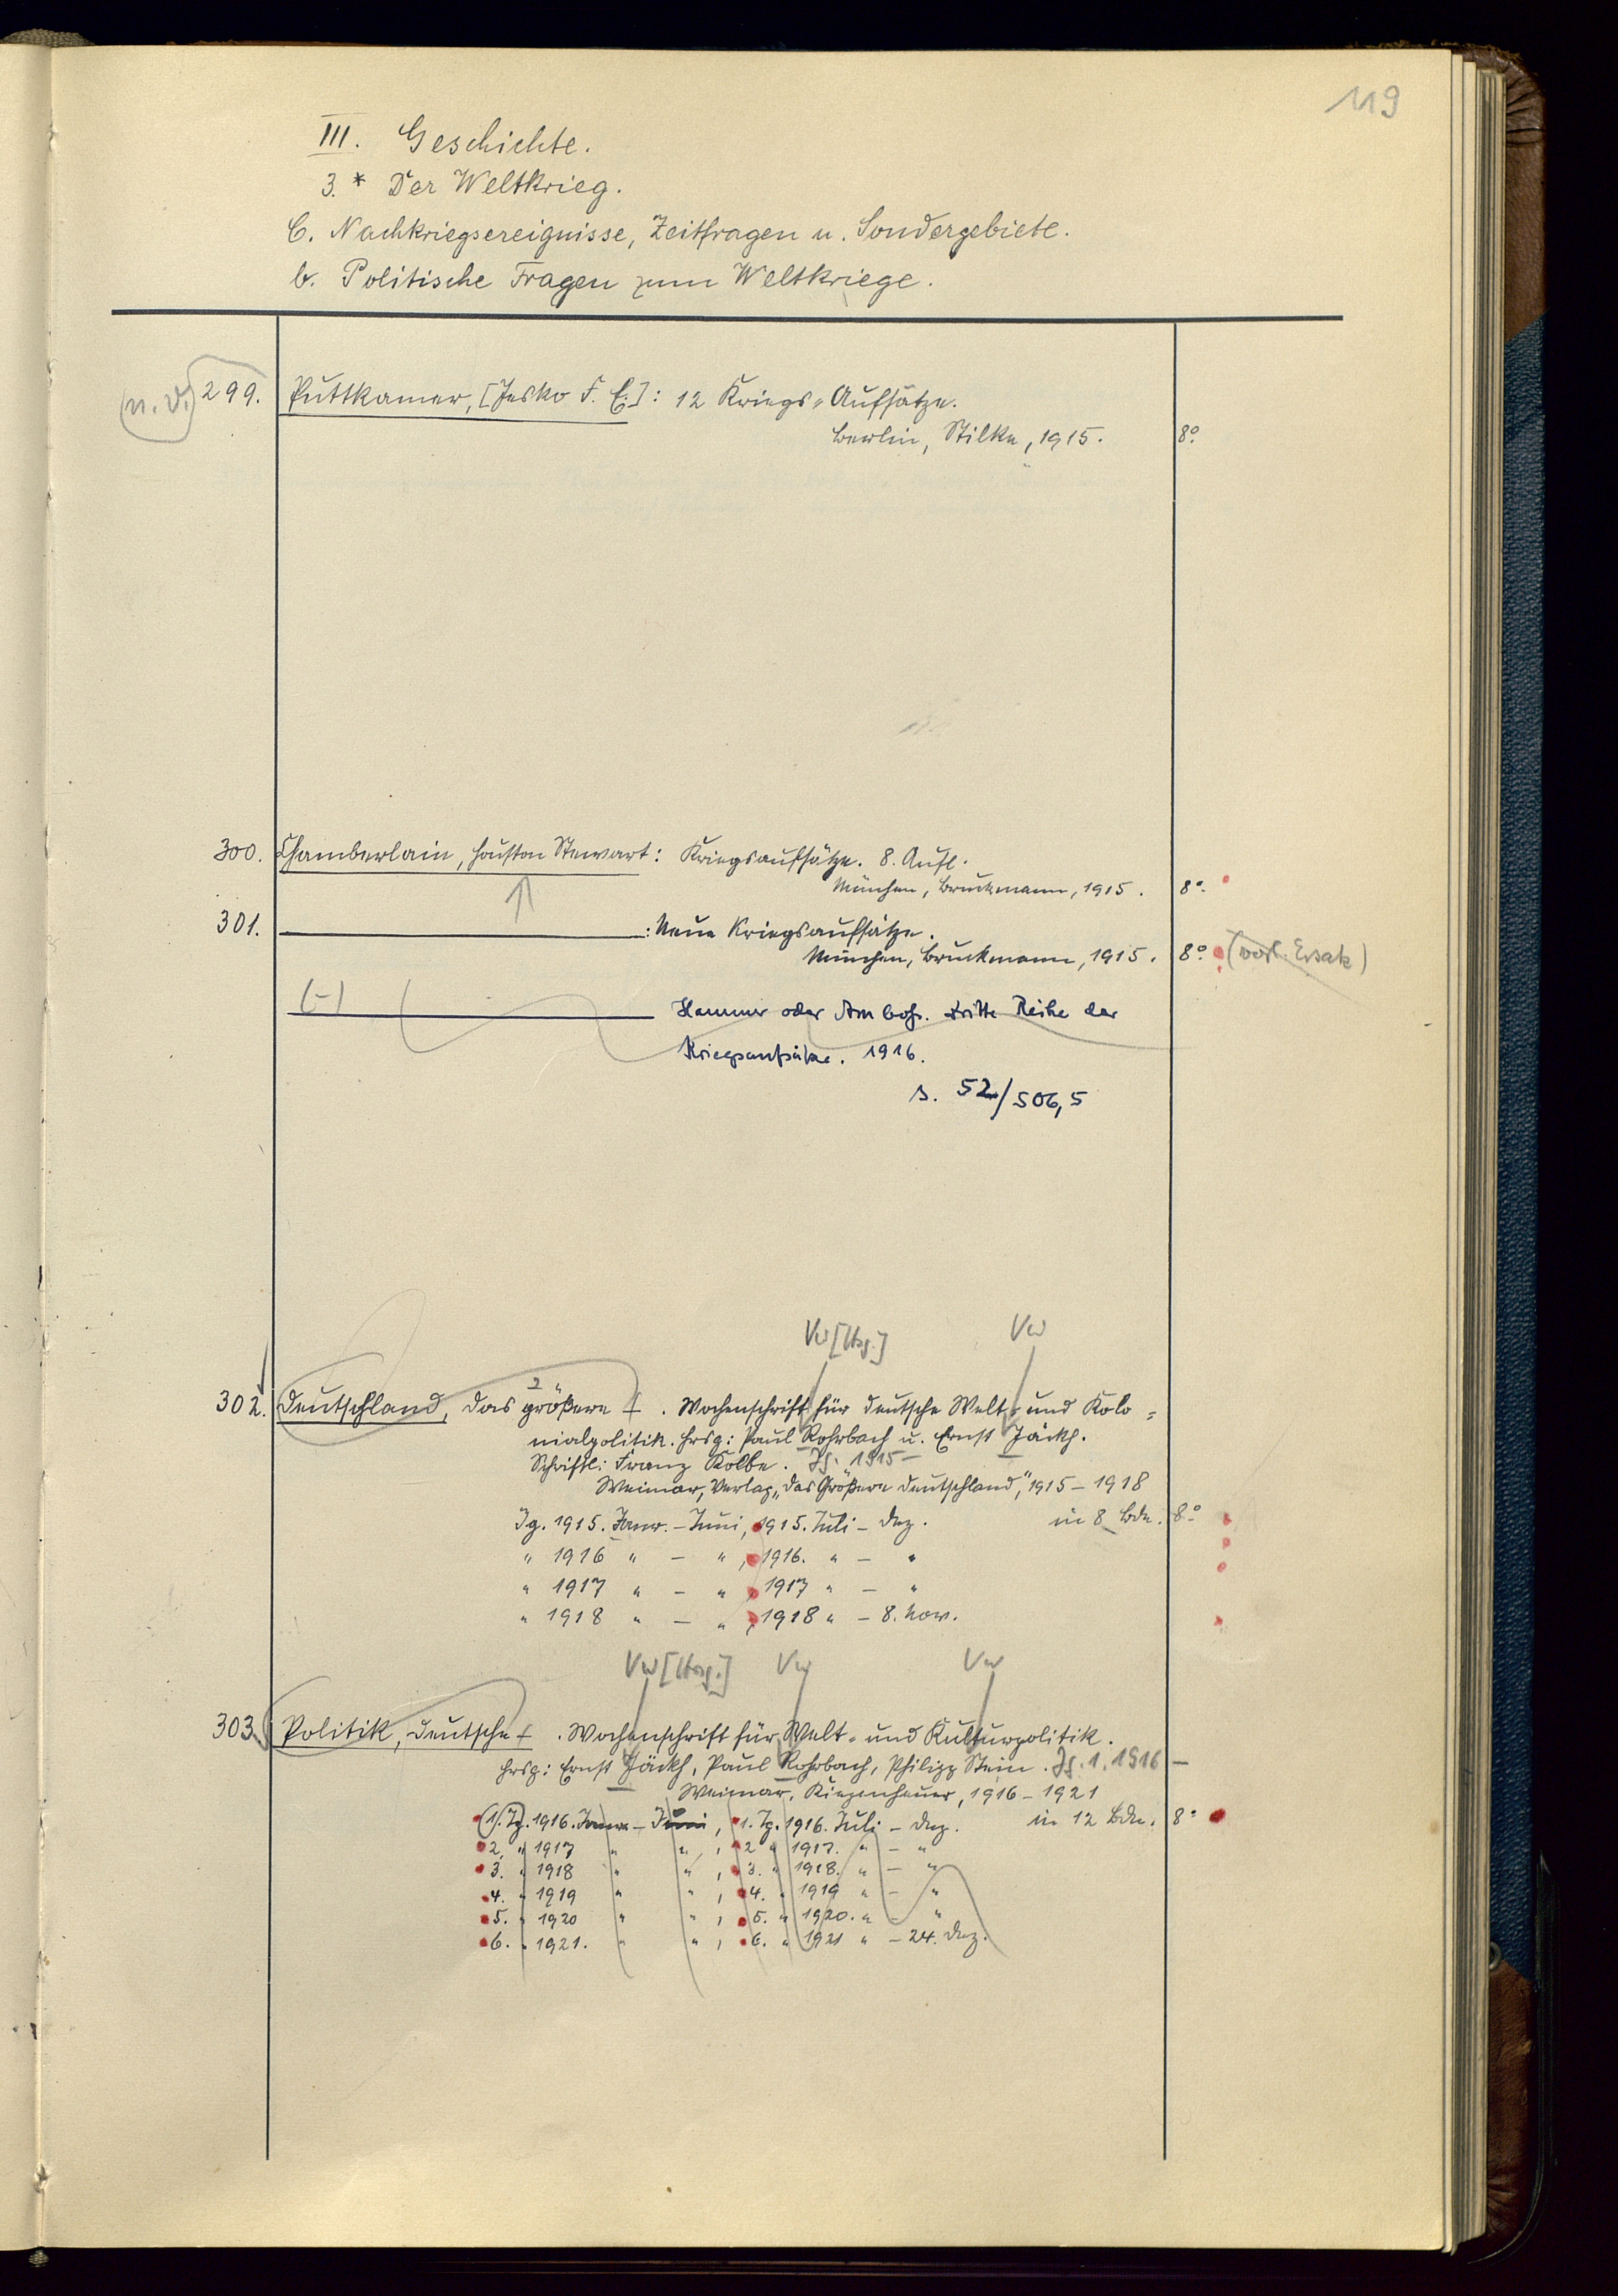 119
III. Geschichte.
3.* Der Weltkrieg.
C. Nachkriegsereignisse, Zeitfragen u. Sondergebiete.
b. Politische Fragen zum Weltkriege.
(n. v.) 299. Puttkamer, [Jesko F. E.]: 12 Kriegs-Aufsätze.
Berlin, Stilke, 1915. 8°
300. Chamberlain, Houston Stewart: Kriegsaufsätze. 8. Aufl.
München, Bruckmann, 1915. 8°
301. : Neue Kriegsaufsätze.
München, Bruckmann, 1915. 8° (vorl. Ersatz)
(-) Hammer oder Amboß. Dritte Reihe der
Kriegsaufsätze. 1916.
s. 52/506,5
Vw [Hrsg.] Vw
2
302. Deutschland, das größere . Wochenschrift für deutsche Welt- und Kolo=
nialpolitik. Hrsg: Paul Rohrbach u. Ernst Jäckh.
Schriftl.: Franz Kolbe. Jg. 1915 –
Weimar, Verlag „Das Größere Deutschland", 1915 – 1918
Jg. 1915. Janr. – Juni, 1915. Juli – Dez. in 8 Bdn. 8°
" 1916 " – " , 1916. " – "
" 1917 " – " , 1917 " – "
" 1918 " – " , 1918 " – 8. Nov.
Vw [Hrsg.] Vw Vw
303. Politik, deutsche . Wochenschrift für Welt- und Kulturpolitik.
Hrsg: Ernst Jäckh, Paul Rohrbach, Philipp Stein. Jg. 1. 1916 –
Weimar, Kiepenheuer, 1916 – 1921
1. Jg. 1916. Janr. – Juni, 1. Jg. 1916. Juli – Dez. in 12 Bdn. 8°
2. " 1917 " " , 2 " 1917. " – "
3. " 1918 " " , 3. " 1918. " – "
4. " 1919 " " , 4. " 1919 " – "
5. " 1920 " " , 5. " 1920. " – "
6. " 1921. " " , 6. " 1921 " – 24. Dez.